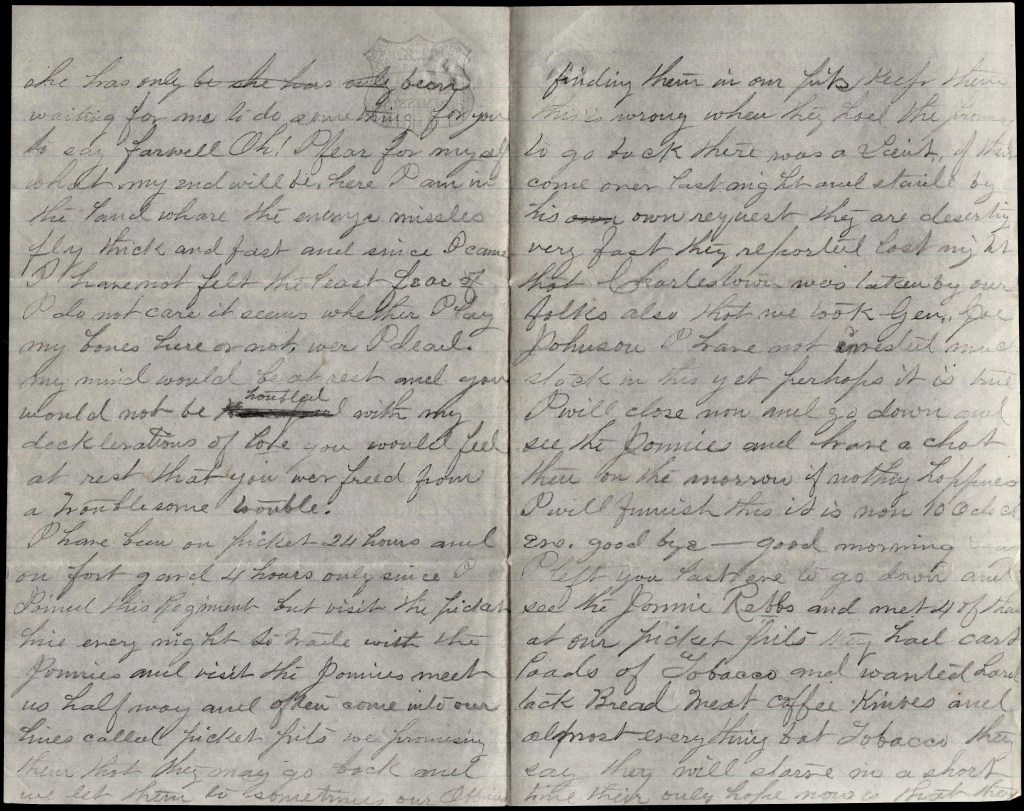 she has only be she has only been
waiting for me to do something for you
to say farwell Oh! I fear for myself
what my end will be, here I am in
the land whare the enemys missles
fly thick and fast and since I came
I have not felt the least fear of
I do not care it seems whether I lay
my bones here or not, wer I dead.
my mind would be at rest and you
would not be troubled with my
decklerations of love you would feel
at rest that you wer freed from
a troublesome trouble.
I have been on picket 24 hours and
on fort gard 4 hours only since I
Joined this Regiment but visit the picket
line every night to trade with the
Jonnies and visit the Jonnies meet
us half way and often come into our
lines called picket pits we promising
them that they may go back and
we let them to sometimes our
finding them in our pits keeps them
this is wrong when they had the promise
to go back there was a Lieut, of theirs
come over last night and staid by
his own own request they are deserting
very fast they reported last night
that Charlestown was taken by our
folks also that we took Gen. Joe
Johnson I have not invested much
stock in this yet perhaps it is true
I will close now and go down and
see the Jonnies and have a chat
then on the morrow if nothing happines
I will furnish this it is now 10 Oclock
eve. good bye — good morning
I left you last eve to go down and
see the Jonnie Rebbs and met 4 of them
at our picket pits they had cart
loads of Tobacco and wanted hard
tack Bread Meat coffee Knives and
almost everything but Tobacco they
say they will starve in a short
time their only hope now is that they